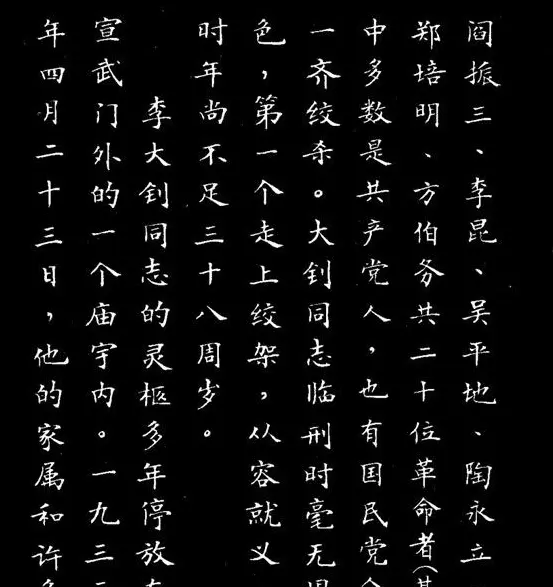 阎振三、李昆、吴平地、陶永立
郑培明、方伯务共二十位革命者(
中多数是共产党人，也有国民党
一齐绞杀。大钊同志临刑时毫无
色，第一个走上绞架，从容就义
时年尚不足三十八周岁。
李大钊同志的灵柩多年停放
宣武门外的一个庙宇内。一九三
年四月二十三日，他的家属和许